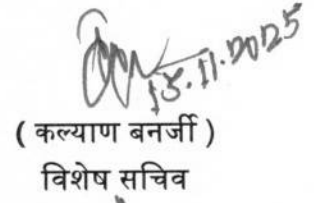 15.11.2025
( कल्याण बनर्जी )
विशेष सचिव